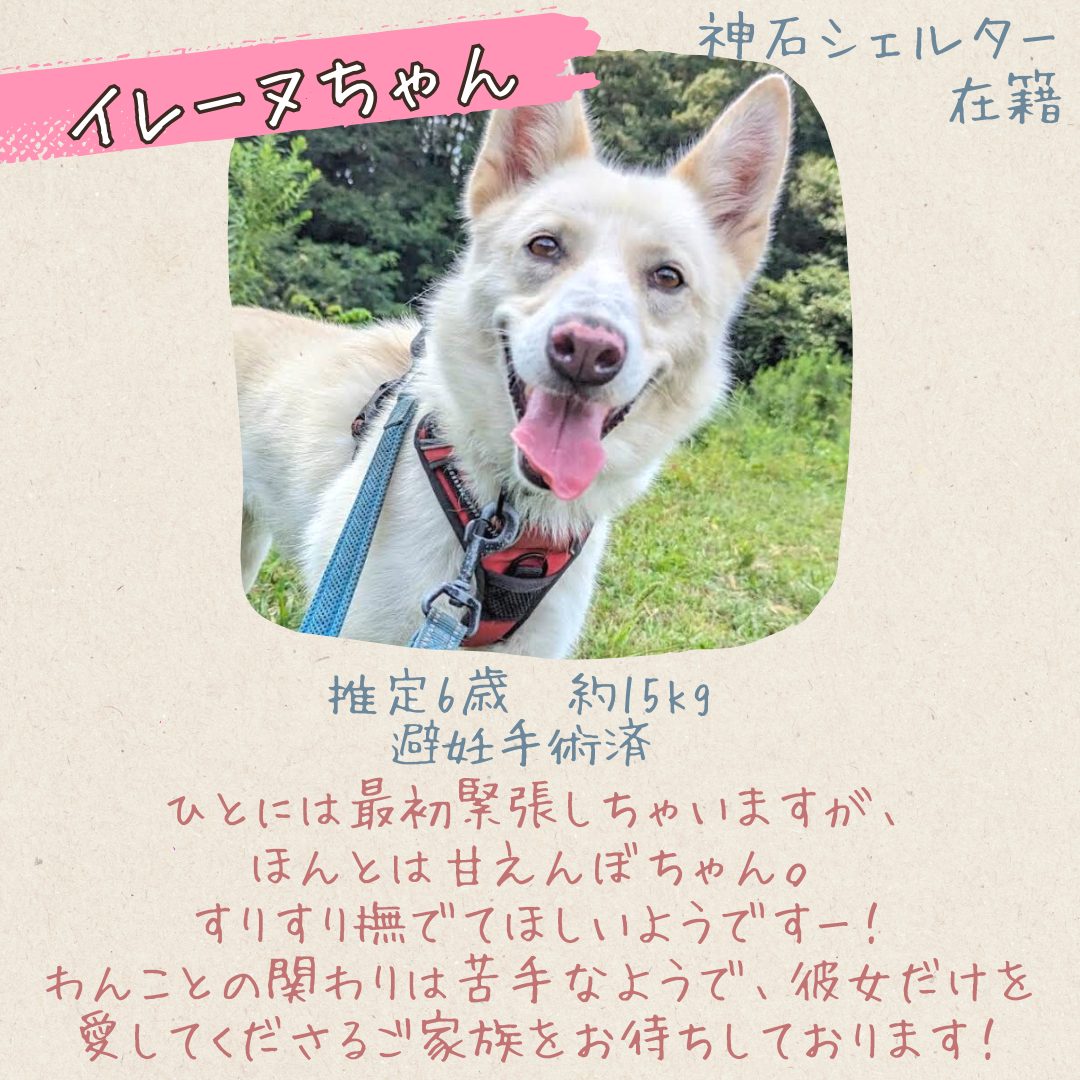 イレーヌちゃん
神石シェルター
在籍
推定6歳　約15kg
避妊手術済
ひとには最初緊張しちゃいますが、
ほんとは甘えんぼちゃん。
すりすり撫でてほしいようですー!
わんことの関わりは苦手なようで、彼女だけを
愛してくださるご家族をお待ちしております!